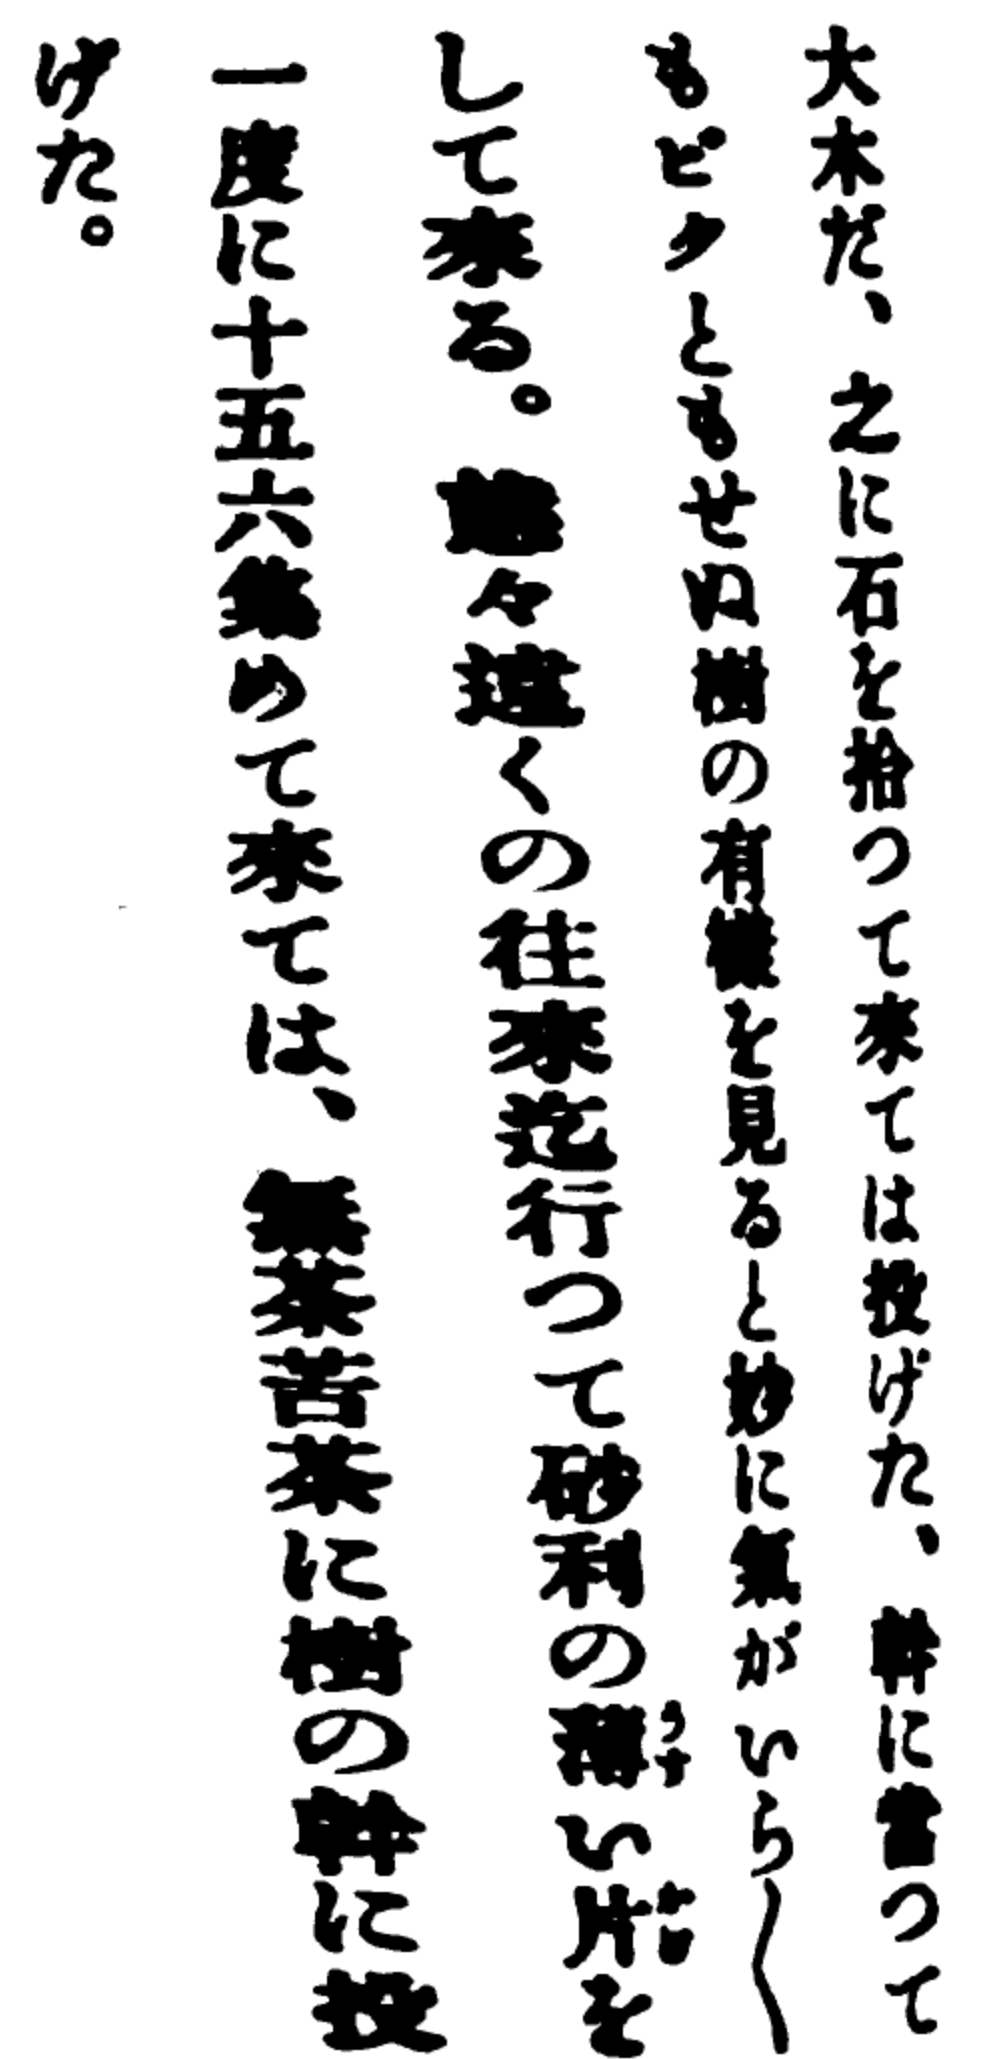 大木だ、之に石を拾つて來ては投げた、幹に當つて
もビクともせぬ樹の有樣を見ると妙に氣がいら〱
して來る。態々遠くの往來迄行つて砂利の薄い片を
一度に十五六集めて來ては、無茶苦茶に樹の幹に投
げた。